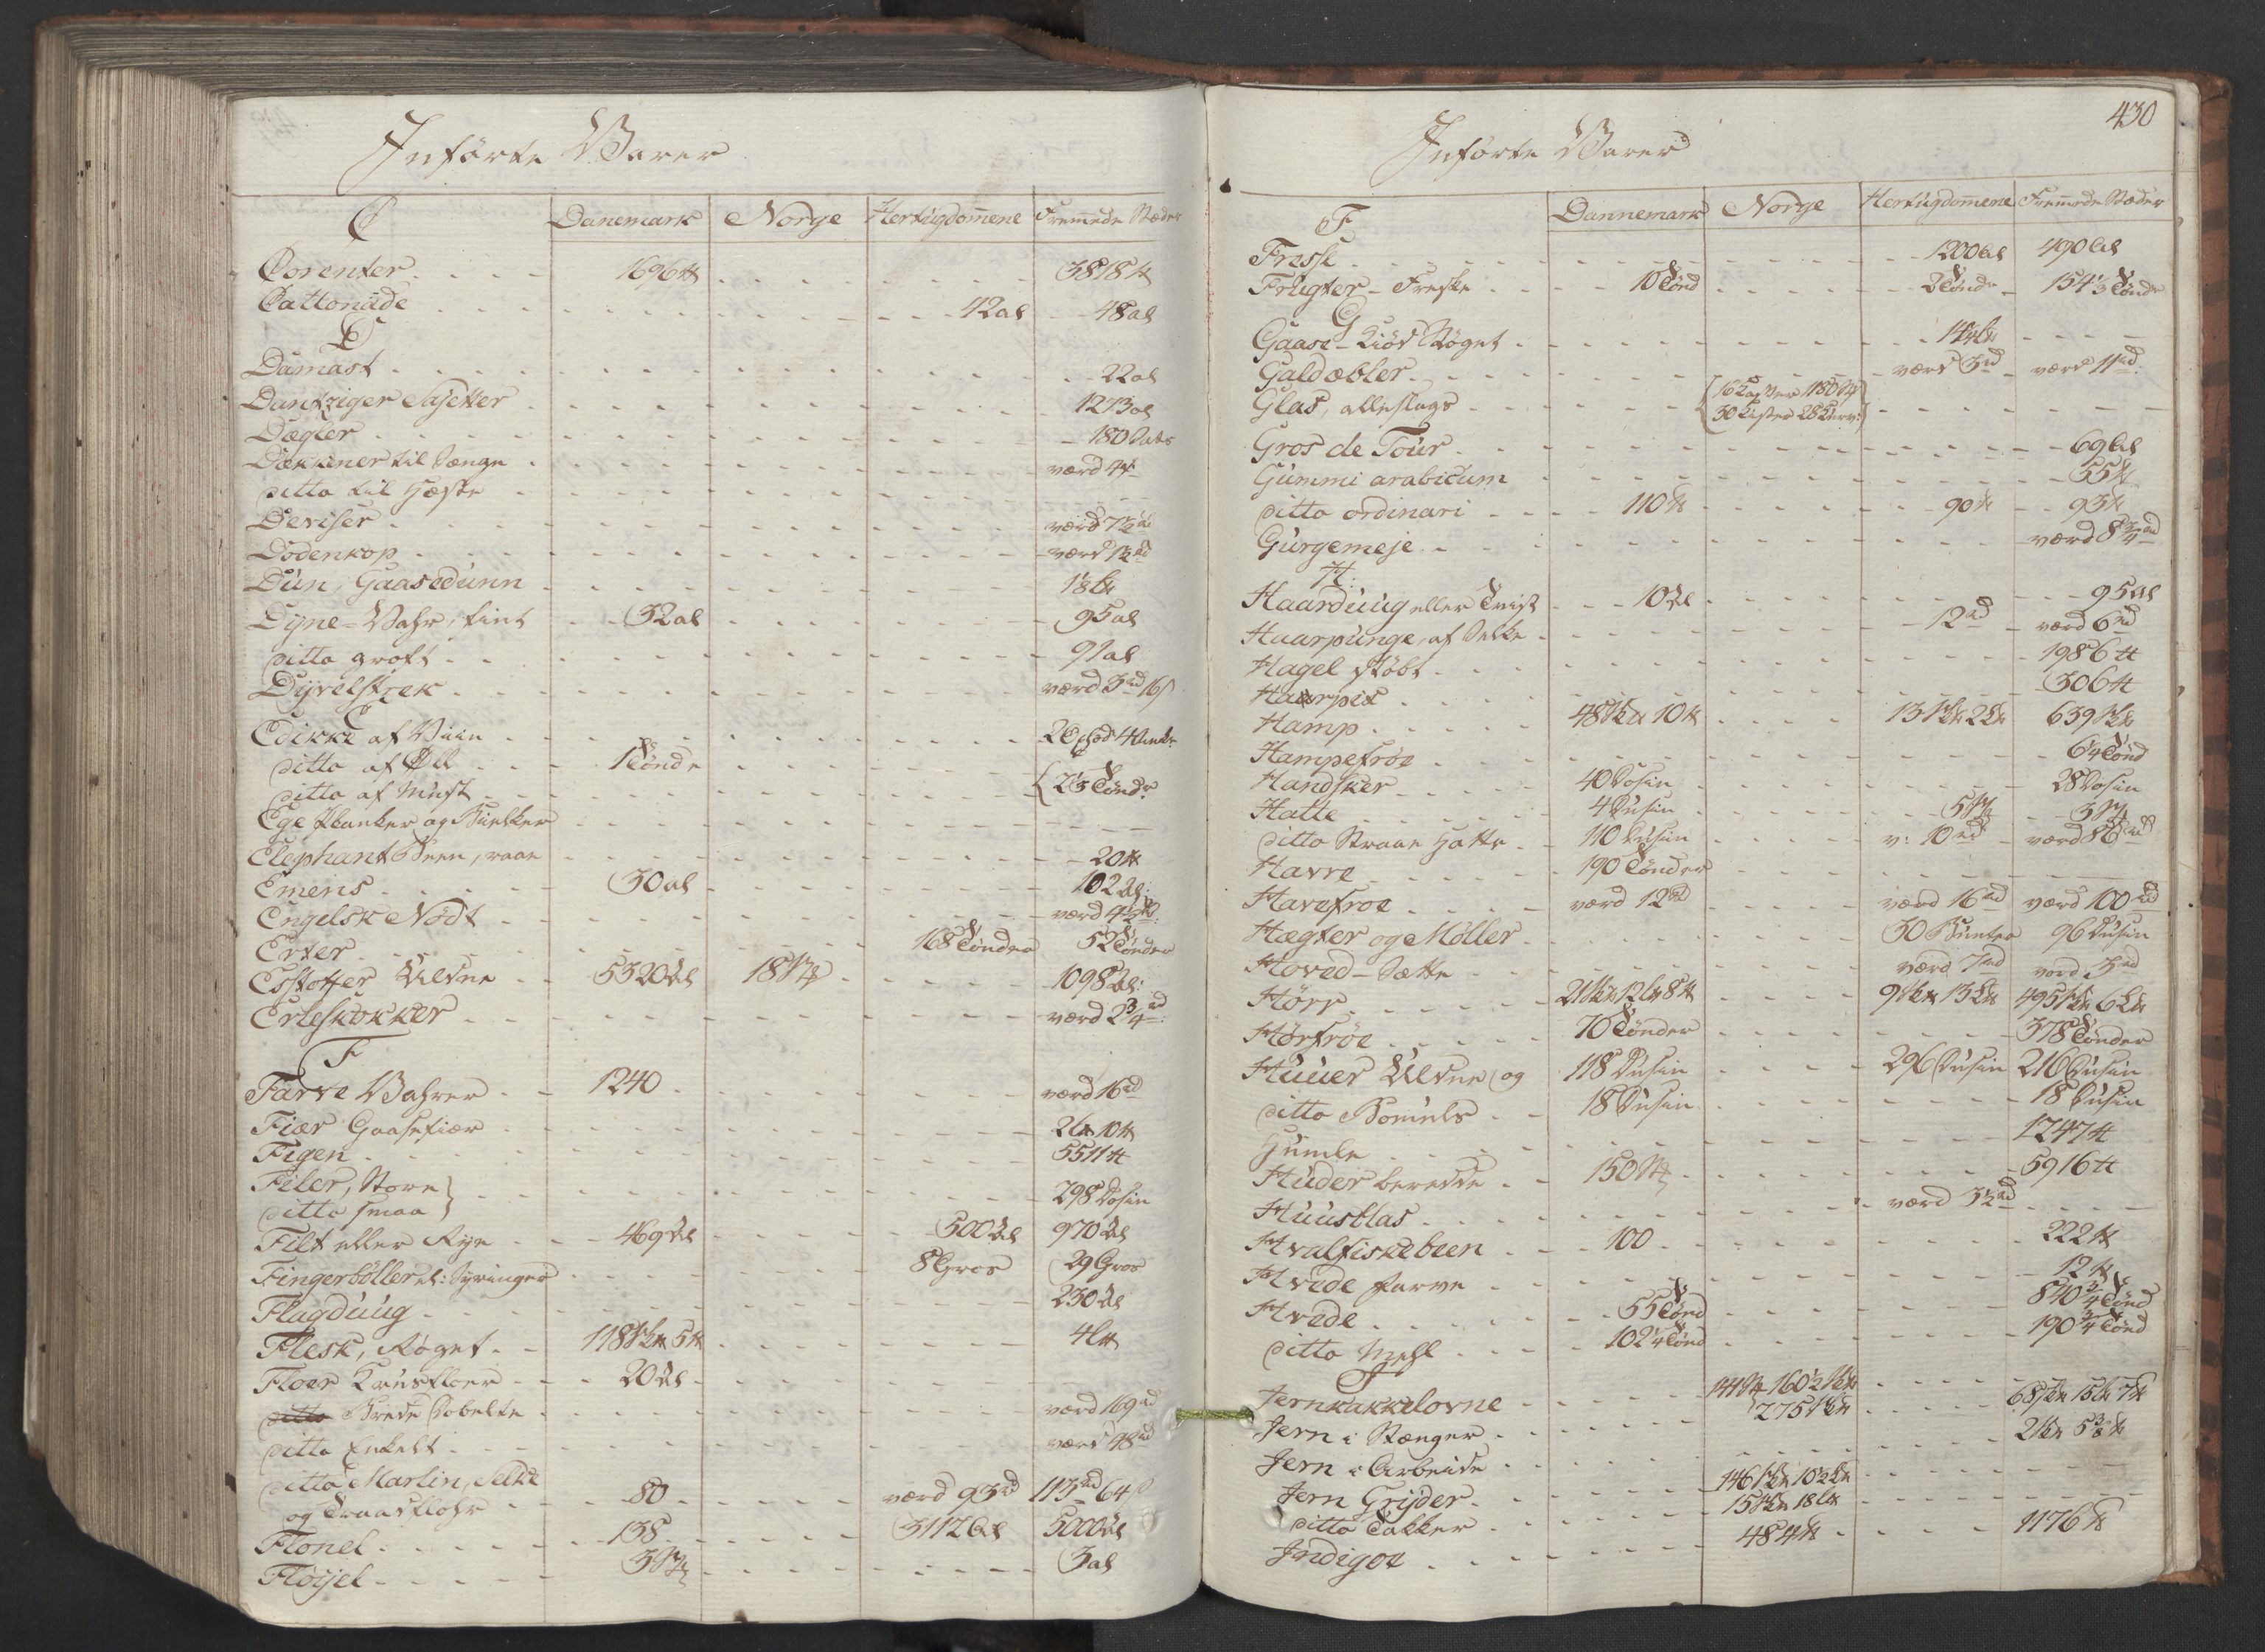 Inførte Varer
C Danemark Norge Hertugdommene Fremmede Stæder
Corenter 1696 ℔ 3818 ℔
Cattonüde 42 al 48 al
D
Damast 22 al
Dantziger Sajetter 1213 al
Dægler 180
Dækkener til Senge værd 4
ditto til Heste
Deviser værd 7½ rd
Dodenkop værd 1½ rd
Dün, Gaasedünn
Dyne-Vahr, fint 32 al 95 al
ditto groft 91 al
Dyvelstrek værd 3 rd 16 s
E
Edikke af Viin 2 Oxhod 4 Anker
ditto af Øll 1 Tønde
ditto af Must 2⅓ Tønde
Ege Planker og Bielker
Elephant Been, raae 20 ℔
Emens 30 al 102 al
Engelsk Nødt værd 4½
Erter 168 Tønder 52 Tønder
Estoffer Uldne 5320 al 18 1098 al
Erteskokker værd 2¾ rd
F
Farve Vahrer 1240 værd 16 rd
Fiær Gaasefiær 2 L℔ 10 ℔
Figen 5511 ℔
Filer, Store
ditto smaa 298 Dosin
Filt eller Rye 469 al 500 al 970 al
Fingerbøller el: Syringer 8 Gros 29 Gros
Flagdüüg 230 al
Flesk, Røget 118 5 ℔ 4 L℔
Floer Krusfloer 20 al
ditto Brede Dobelte værd 169 rd
ditto Enkelt værd 48 rd
ditto Marlin, Silke
og Traadflohr 80 værd 93 rd 113 rd 64 s
Flonel 138 3112 al 5000 al
Fløyel 3 3 al
430
Inførte Varer
F Dannemark Norge Hertugdommene Fremmede Stæder
Fresse 1200 al 490 al
Frügter-Freske 10 Tønd 2 Tønde 154⅓ Tønde
G
Gaase-Kiød Røget
Galdæbler værd 3 rd værd 11 rd
Glas, alleslags 30 Kister 28 Kurv:
Gros de Tour 69 al
Gümmi arabicum 55 ℔
ditto ordinari 110 ℔ 90 ℔ 93 ℔
Gürgemeje værd 8¾ rd
H:
Haardüüg eller Trist 10 al 95 al
Haarpünge, af Silke 12 rd værd 6 rd
Hagel støbt 1986 ℔
Harpix 306 ℔
Hamp 48 10 ℔ 13 2 L℔ 639
Hampefrøe 6¼ Tønd
Handsker 40 Dosin 28 Dosin
Hatte 4 Dusin 5 3
ditto Straae Hatte 110 Dusin v: 10 rd værd 86 rd
Havre 190 Tønder
Havefrøe værd 12 rd værd 16 rd værd 100 rd
Hægter og Møller 30 Bunter 96 Dusin
Hoved-Sætte værd 7 rd værd 3 rd
Hørr 21 12 L℔ 8 ℔ 9 13 L℔ 495 6 L℔
Hørfrøe 76 Tønder 378 Tønder
Hüuer Uldne og 118 Dusin 296 Dusin 216 Dusin
ditto Bomuls 18 Dusin 18 Dusin
Humle 1247 ℔
Hüder beredde 150 5916 ℔
Hüüsblas værd 3½ rd
Hvalfiskebeen 100 222 ℔
Hvede farve 12 ℔
Hvede 55 Tønd 840¾ Tønd
ditto Mehl 102¼ Tønd 190¾ Tønd
J
Jernkakkelovne 144 160½
Jern i Stænger 275 68 15 L℔ 7 ℔
Jern i Arbeide 2 5⅜ ℔
Jern Gryder 146 10½ L℔
ditto Takker 15 18 L℔
Indigoe 484 ℔ 1176 ℔